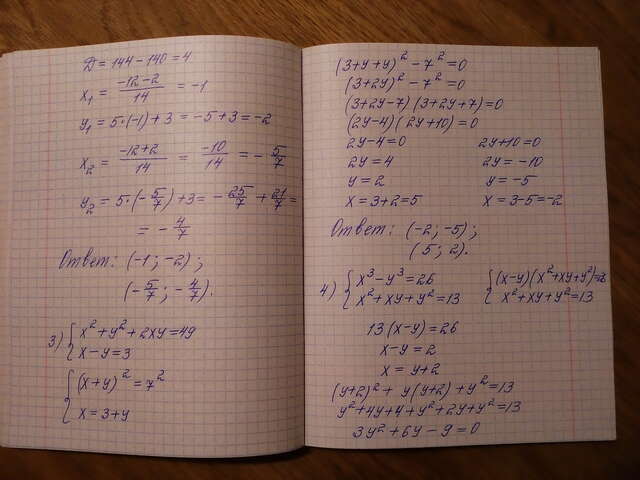 D = 144 - 140 = 4
x₁ = (-12-2)/14 = -1
y₁ = 5·(-1)+3 = -5+3 = -2
x₂ = (-12+2)/14 = -10/14 = -5/7
y₂ = 5·(-5/7)+3 = -25/7 + 21/7 =
= -4/7
Ответ: (-1; -2);
(-5/7; -4/7).
3) { x² + y² + 2xy = 49
x - y = 3
{ (x+y)² = 7²
x = 3+y
(3+y+y)² - 7² = 0
(3+2y)² - 7² = 0
(3+2y-7)(3+2y+7) = 0
(2y-4)(2y+10) = 0
2y-4=0 2y+10=0
2y=4 2y=-10
y=2 y=-5
x=3+2=5 x=3-5=-2
Ответ: (-2; -5);
(5; 2).
4) { x³ - y³ = 26 { (x-y)(x²+xy+y²)=26
x²+xy+y²=13 x²+xy+y²=13
13(x-y)=26
x-y=2
x=y+2
(y+2)² + y(y+2) + y² = 13
y²+4y+4+y²+2y+y²=13
3y²+6y-9=0